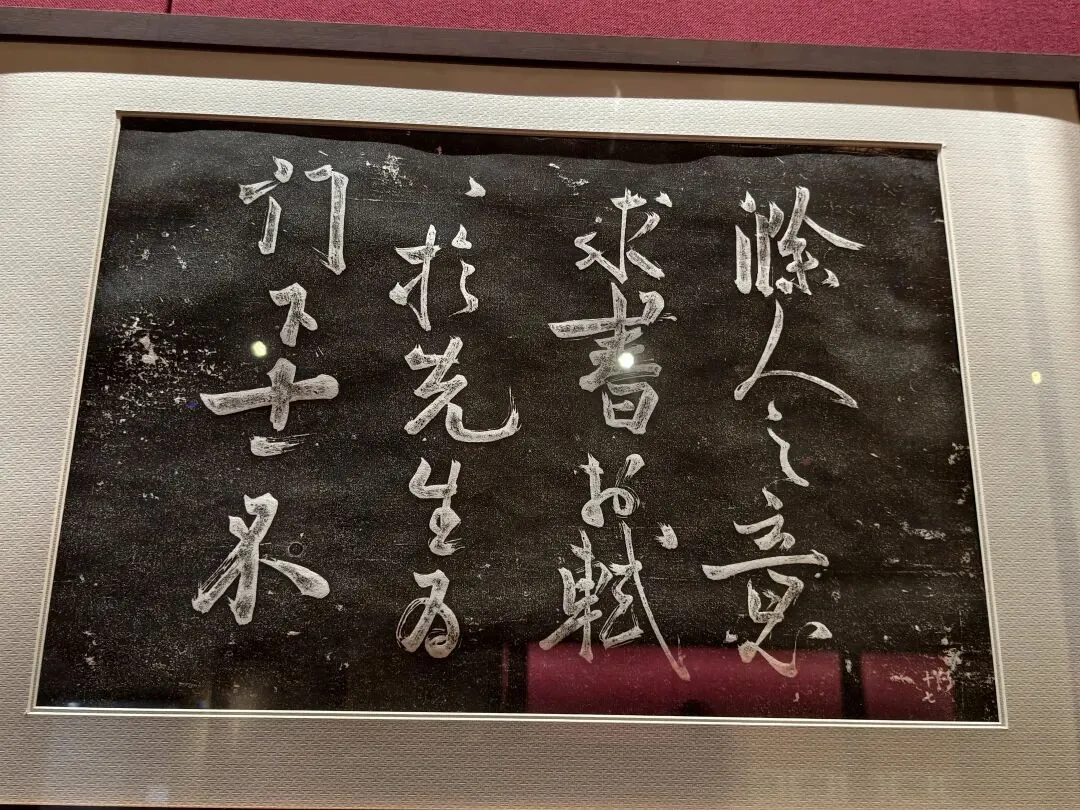 滁人之意
求書於軾
、於先生為
門下士不
十七